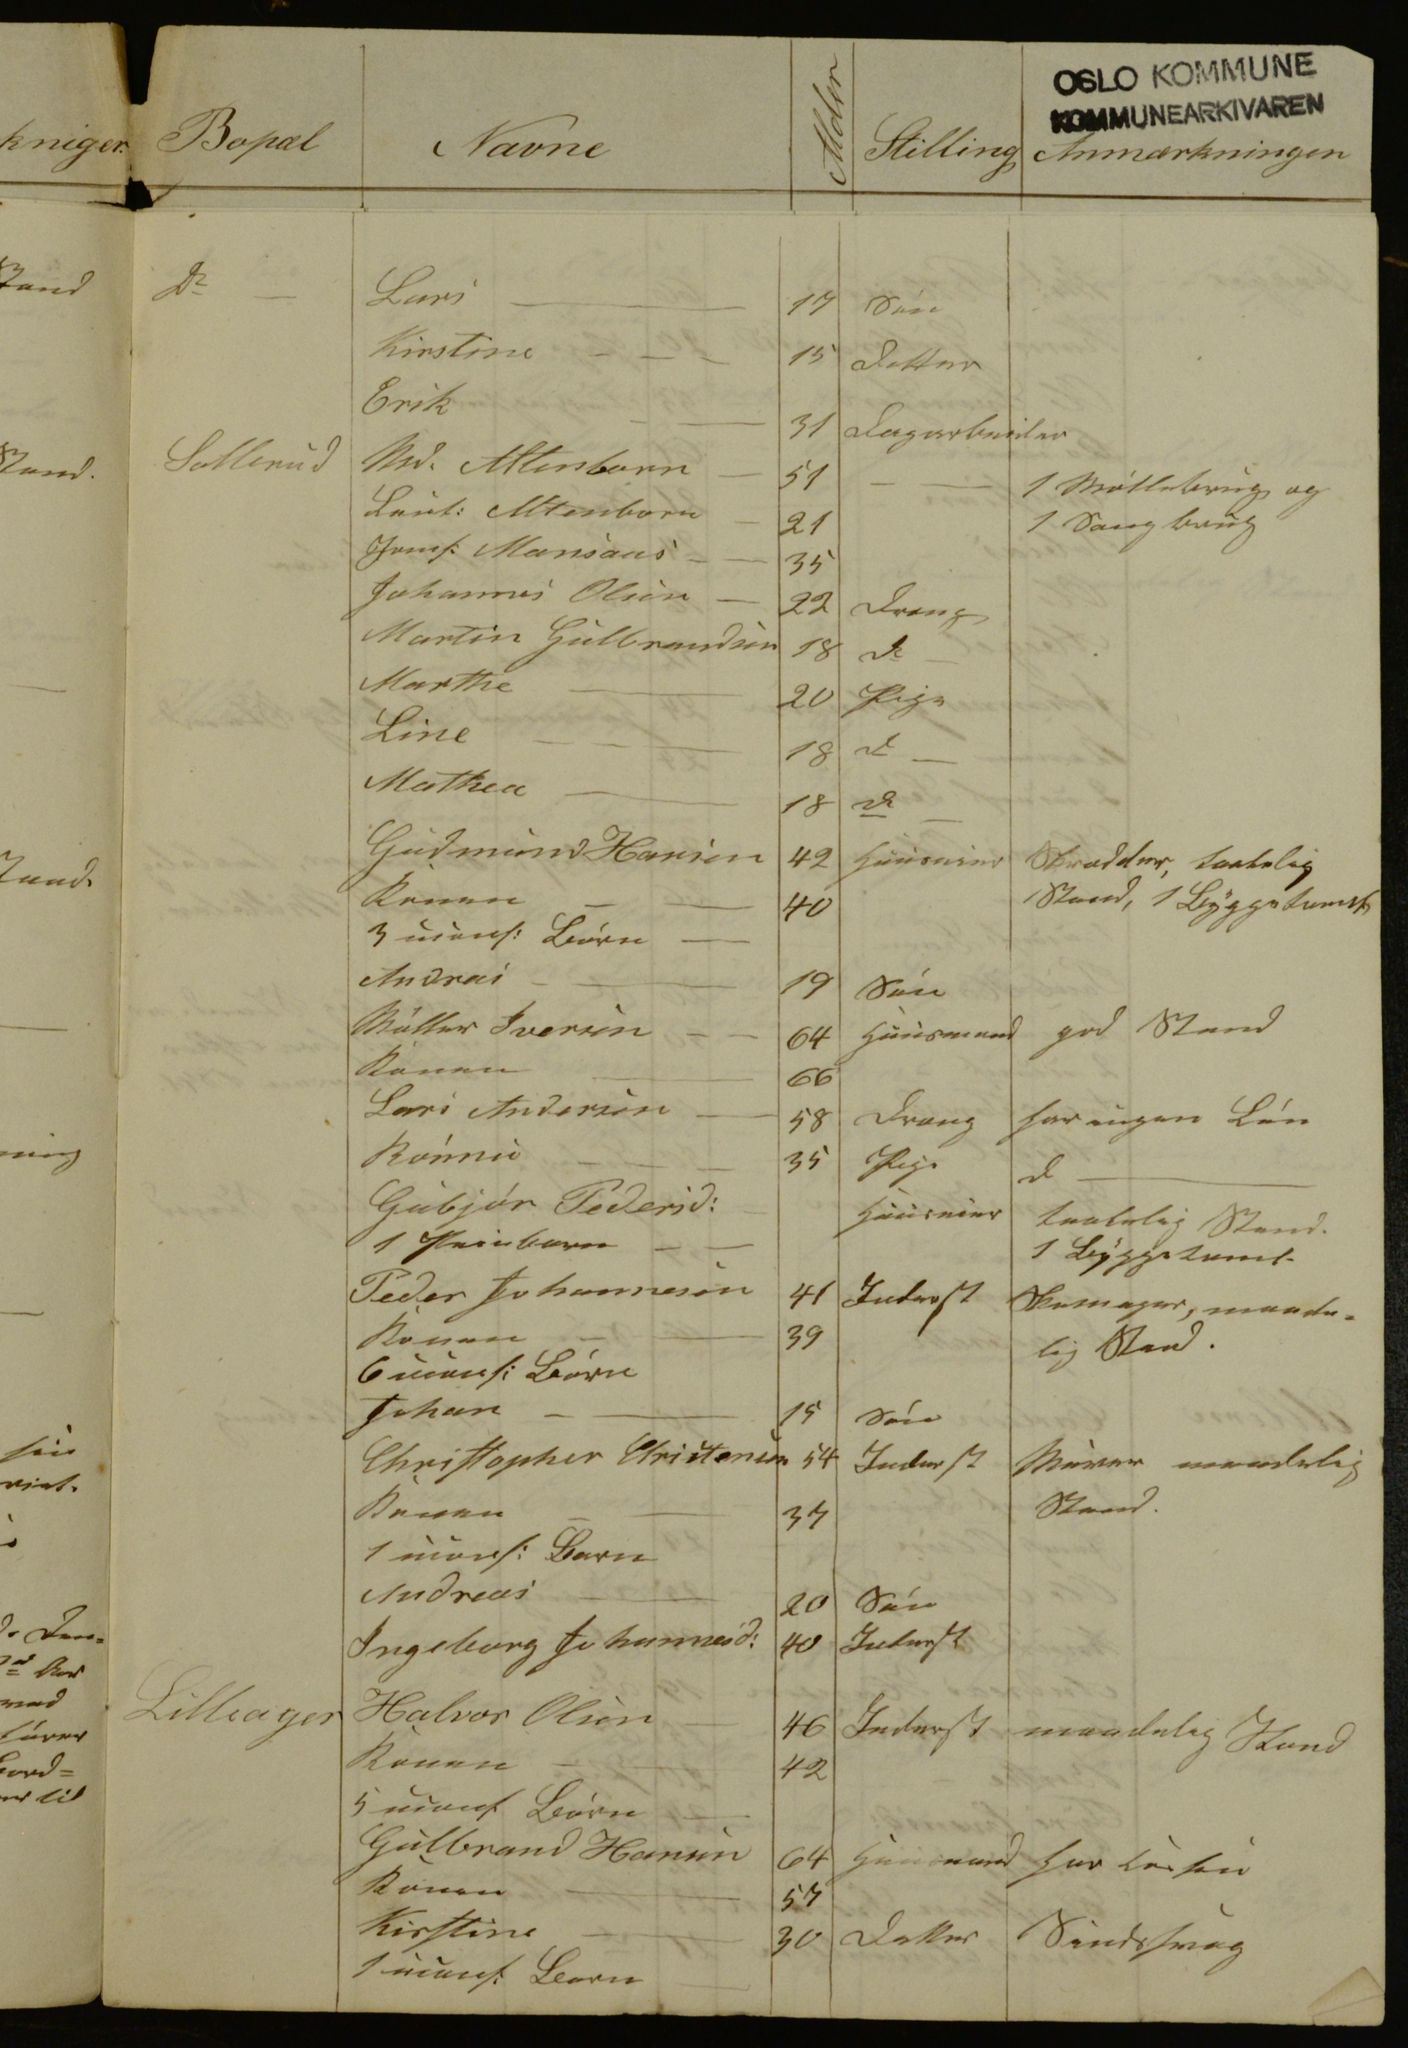 OSLO KOMMUNE
KOMMUNEARKIVAREN
kninger. Bopæl Navne Alder Stilling Anmærkninger
Do — Lars — 17 Søn
Kirstine — 15 Datter
Erik — 31 Dagarbeider
Sollerud Md. Altenborn — 51 — 1 Møllebrug og
Leut: Altenborn — 21 1 Saugbrug
Jomf: Mansaas — 35
Johannes Olsen — 22 Dreng
Martin Gulbrandsen 18 do —
Marthe — 20 Pige
Line — 18 do —
Mathea — 18 do —
Gudmund Hansen 42 Huuseier Skrædder, taalelig
Konen — 40 Stand, 1 Byggetomt
3 uconf: Børn —
Andreas — 19 Søn
Møller Iversen — 64 Huusmand god Stand
Konen — 66
Lars Andersen — 58 Dreng har ingen Løn
Rønnie — 35 Pige do —
Gubjør Pedersd: Huuseier taalelig Stand.
1 Pleiebarn — 1 Byggetomt
Peder Johannesen 41 Inderst Skomager, maade-
Konen — 39 lig Stand.
6 uconf: Børn
Johan — 15 Søn
Christopher Christensen 54 Inderst Murer maadelig
Konen — 37 Stand.
1 uconf: Barn
Andreas — 20 Søn
Ingeborg Johannesd: 40 Inderst
Lilleager Halvor Olsen — 46 Inderst maadelig Stand
Konen — 42
5 uconf Børn —
Gulbrand Hansen 64 Huusmand har
Konen — 57
Kirstine — 30 Datter Sindssvag
1 uconf: Barn